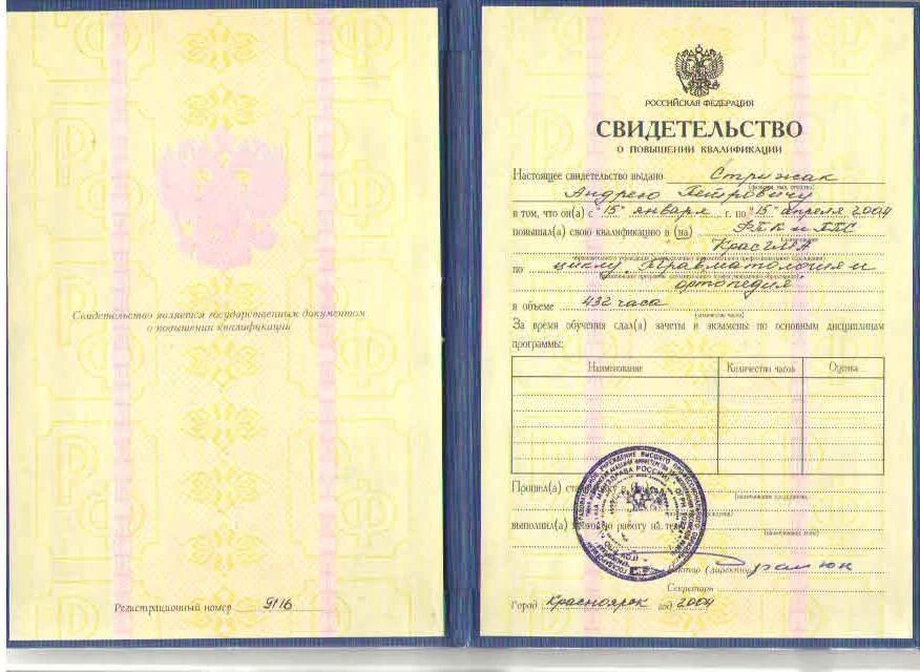 Свидетельство является государственным документом
о повышении квалификации
Регистрационный номер 9116
РОССИЙСКАЯ ФЕДЕРАЦИЯ
СВИДЕТЕЛЬСТВО
О ПОВЫШЕНИИ КВАЛИФИКАЦИИ
Настоящее свидетельство выдано Стрижак
Андрею Петровичу
в том, что он(а) с "15" января г. по "15" апреля 2004
повышал(а) свою квалификацию в (на) ФПК и ППС
КрасГМА
по циклу "Травматология и
ортопедия"
в объеме 432 часа
(количество часов)
За время обучения сдал(а) зачеты и экзамены по основным дисциплинам
программы:
Наименование Количество часов Оценка
Прошел(а)
выполнил(а) работу на
Ректор (директор)
Секретарь
Город Красноярск год 2004